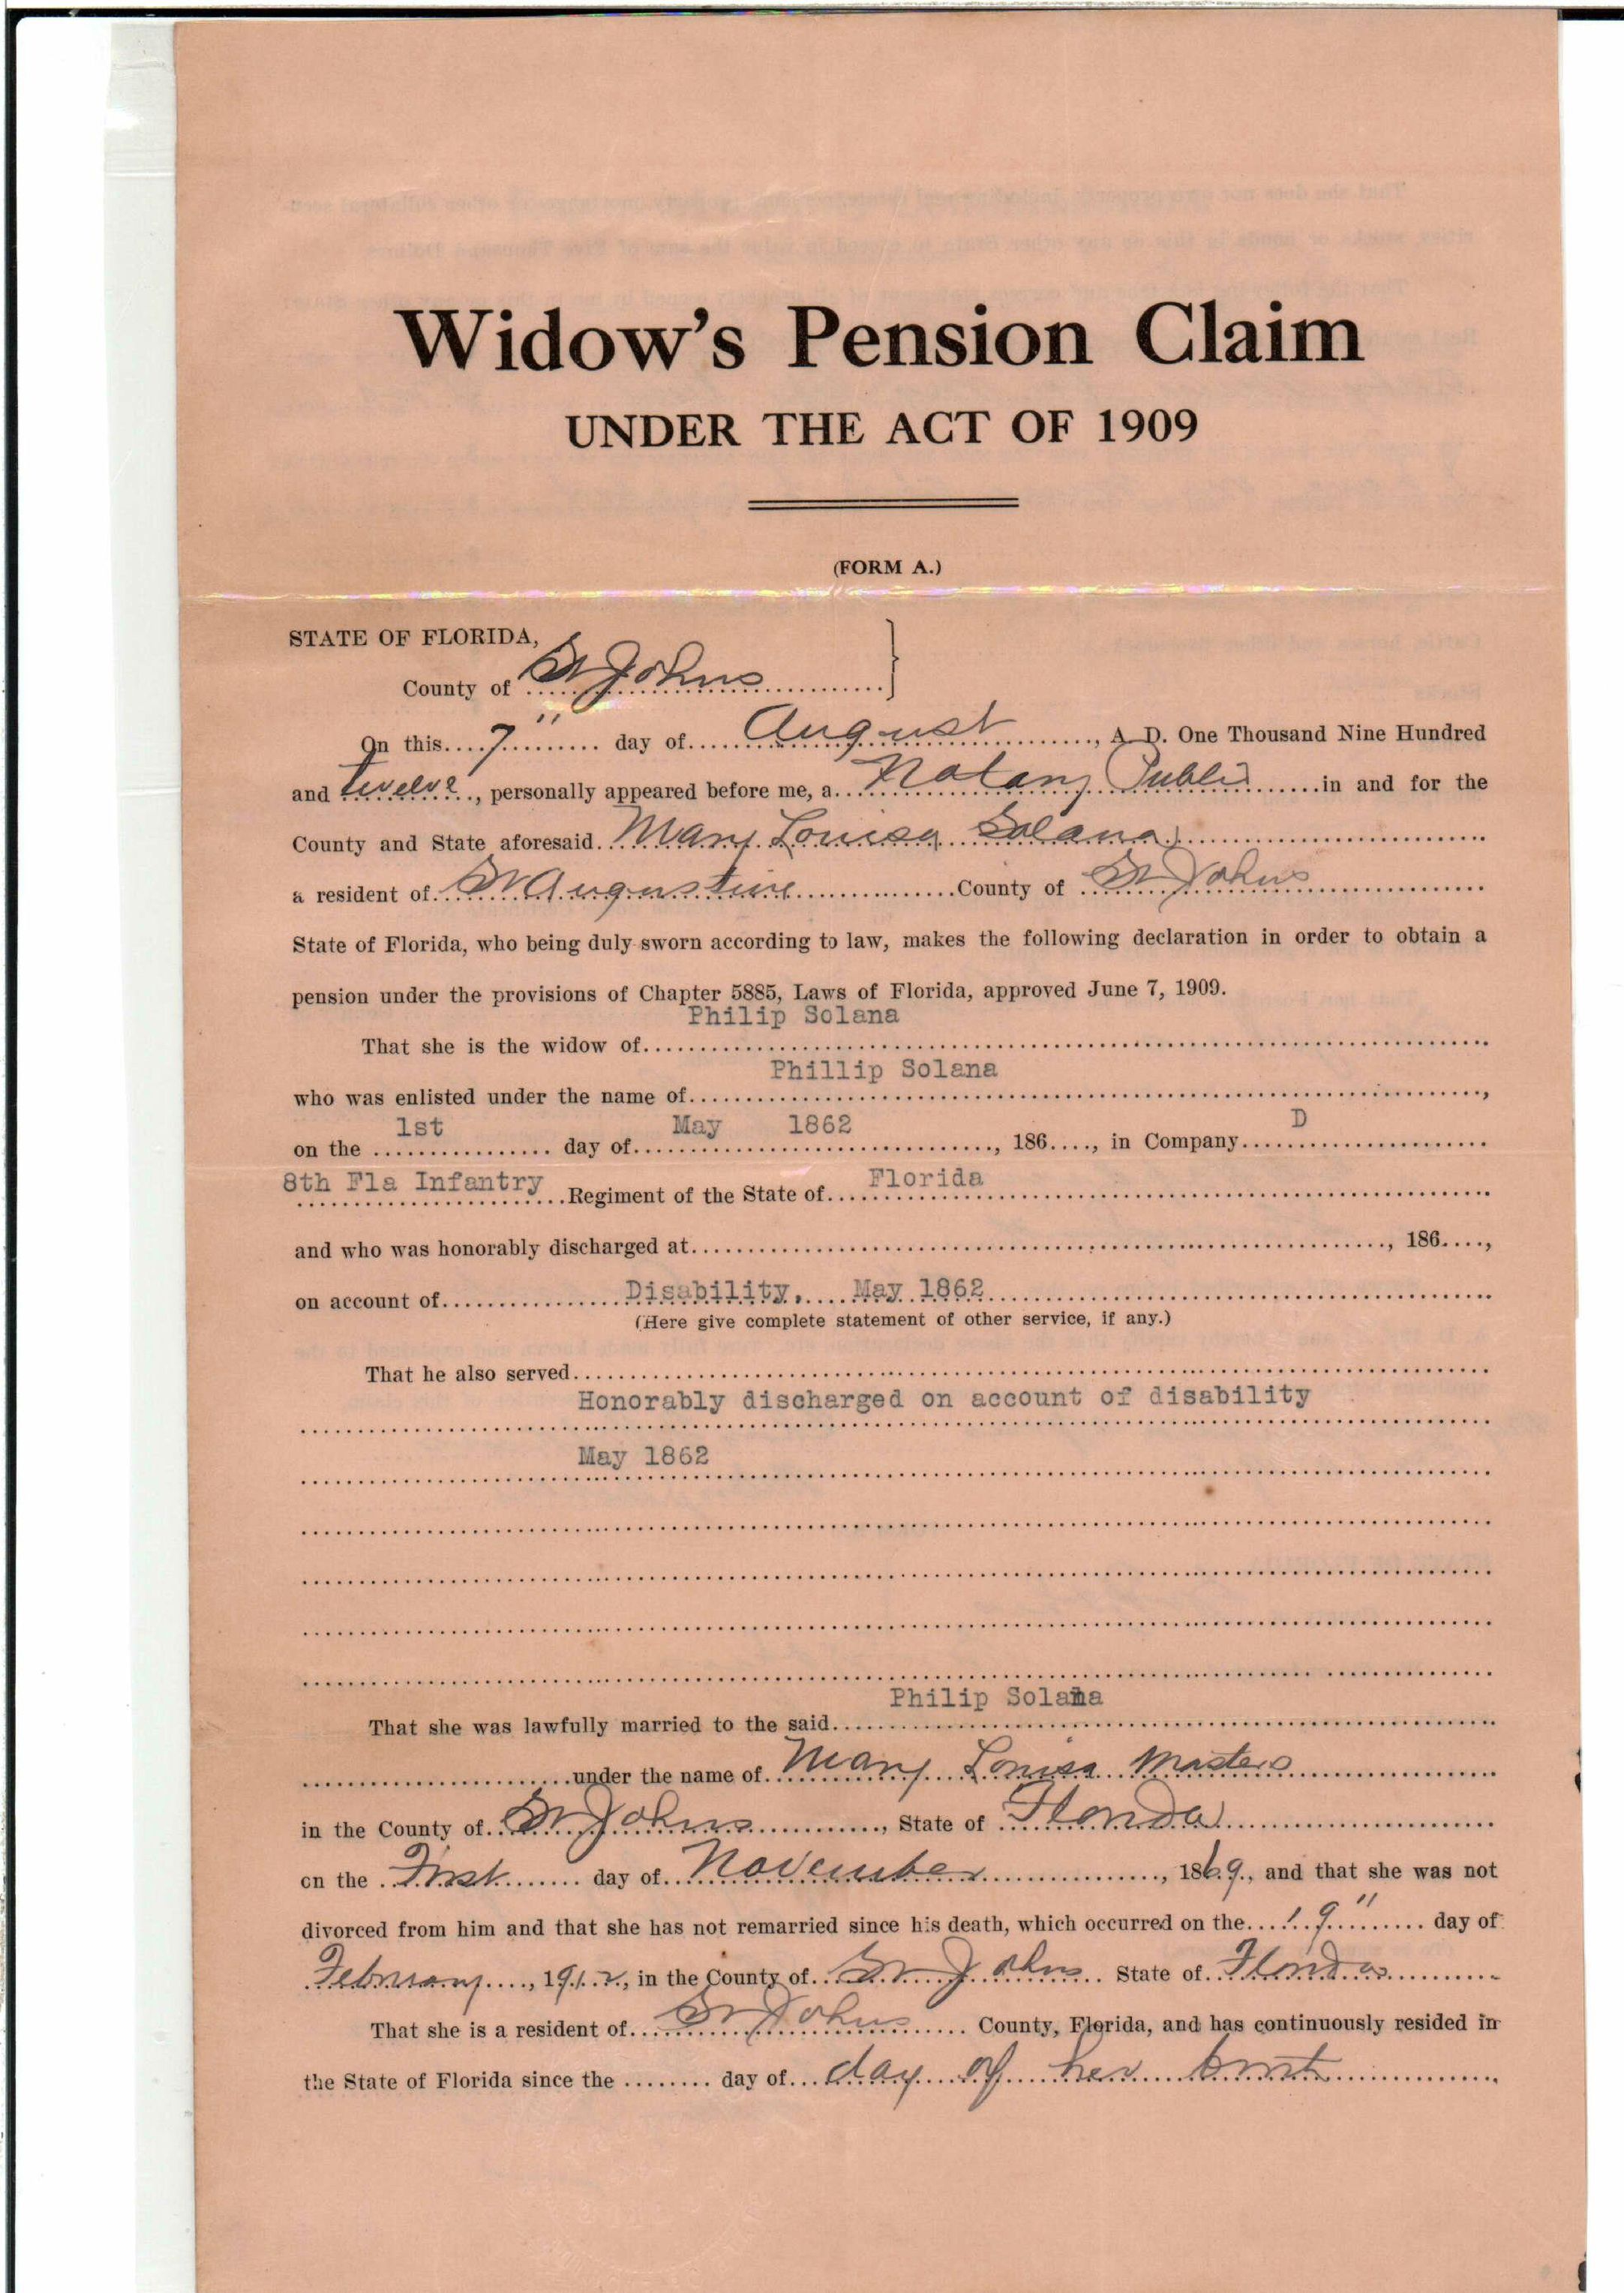 Widow's Pension Claim
UNDER THE ACT OF 1909
(FORM A.)
STATE OF FLORIDA,
County of St Johns
On this 7" day of August, A. D. One Thousand Nine Hundred
and twelve, personally appeared before me, a Notary Public in and for the
County and State aforesaid Mary Louisa Solana
a resident of St Augustine County of St Johns
State of Florida, who being duly sworn according to law, makes the following declaration in order to obtain a
pension under the provisions of Chapter 5885, Laws of Florida, approved June 7, 1909.
Philip Solana
That she is the widow of
Phillip Solana
who was enlisted under the name of ,
1st May 1862 D
on the day of , 186...., in Company
8th Fla Infantry Regiment of the State of Florida
and who was honorably discharged at , 186....,
on account of Disability, May 1862
(Here give complete statement of other service, if any.)
That he also served
Honorably discharged on account of disability
May 1862
Philip Solana
That she was lawfully married to the said
under the name of Mary Louisa Masters
in the County of St Johns, State of Florida
on the First day of November, 1869, and that she was not
divorced from him and that she has not remarried since his death, which occurred on the 19" day of
February, 1912, in the County of St Johns State of Florida
That she is a resident of St Johns County, Florida, and has continuously resided in
the State of Florida since the ........ day of day of her birth